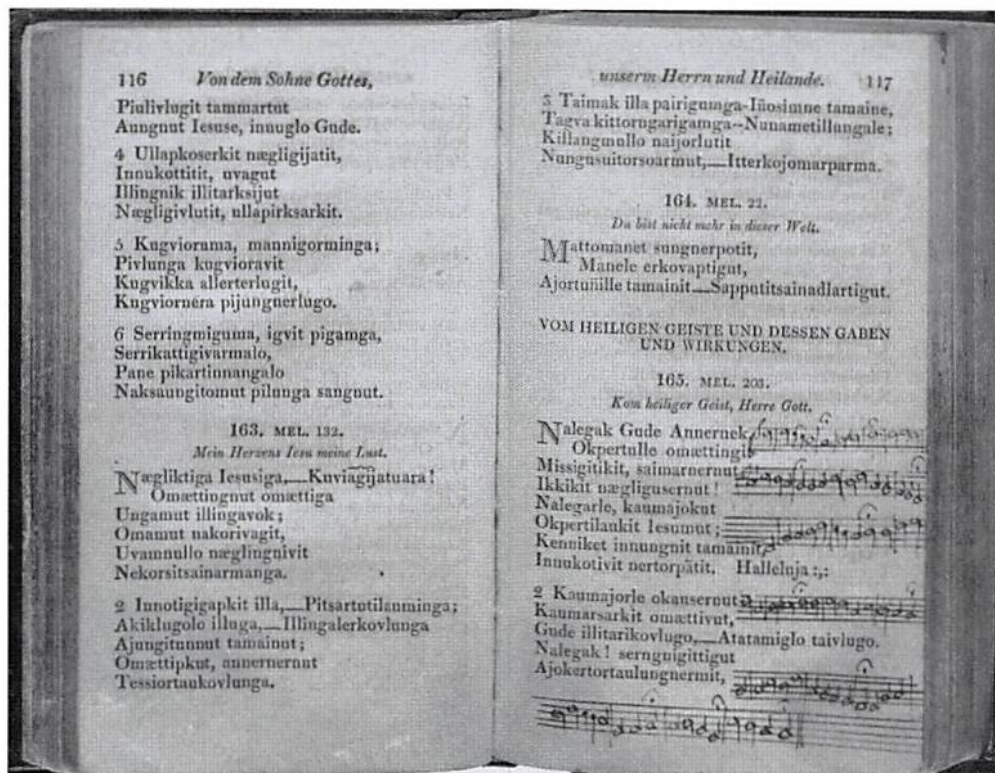 116 Von dem Sohne Gottes,
Piulivlugit tammartut
Aungnut Iesuse, innuglo Gude.
4 Ullapkoserkit nægligijatit,
Innukottitit, uvagut
Illingnik illitarksijut
Nægligivlutit, ullapirksarkit.
5 Kugviorama, mannigorminga;
Pivlunga kugvioravit
Kugvikka allerterlugit,
Kugviornéra pijungnerlugo.
6 Serringmiguma, igvit pigamga,
Serrikattigivarmalo,
Pane pikartinnangalo
Naksaungitomut pilunga sangnut.
163. MEL. 132.
Mein Herzens Iesu meine Lust.
Nægliktiga Iesusiga,—Kuviagijatuara!
Omættingnut omættiga
Ungamut illingavok;
Omamut nakorivagit,
Uvamnullo næglingnivit
Nekorsitsainarmanga.
2 Innotigigapkit illa,—Pitsartutilauminga;
Akiklugolo illuga,—Illingalerkovlunga
Ajungitunnut tamainut;
Omættipkut, annernernut
Tessiortaukovlunga.
unserm Herrn und Heilande. 117
3 Taimak illa pairigumga-Iñosimne tamaine,
Tagva kittorngarigamga--Nunametillungale;
Killangmullo naijorlutit
Nungusuitorsoarmut,—Itterkojomarparma.
164. MEL. 22.
Du bist nicht mehr in dieser Welt.
Mattomanet sungnerpotit,
Manele erkovaptigut,
Ajortuñille tamainit—Sapputitsainadlartigut.
VOM HEILIGEN GEISTE UND DESSEN GABEN
UND WIRKUNGEN.
165. MEL. 203.
Kom heiliger Geist, Herre Gott.
Nalegak Gude Annernek,
Okpertullo omættingit
Missigitikit, saimarnernut
Ikkikit nægligusernut!
Nalegarle, kaumajokut
Okpertilaukit Iesumut;
Kenniket innungnit tamainit,
Innukotivit nertorpatit. Halleluja:,:
2 Kaumajorle okausernut
Kaumarsarkit omættivut,
Gude illitarikovlugo,—Atatamiglo taivlugo.
Nalegak! sernguigittigut
Ajokertortaulungnermit,